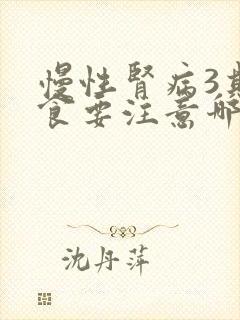 慢性肾病3期
食要注意哪
沈丹萍